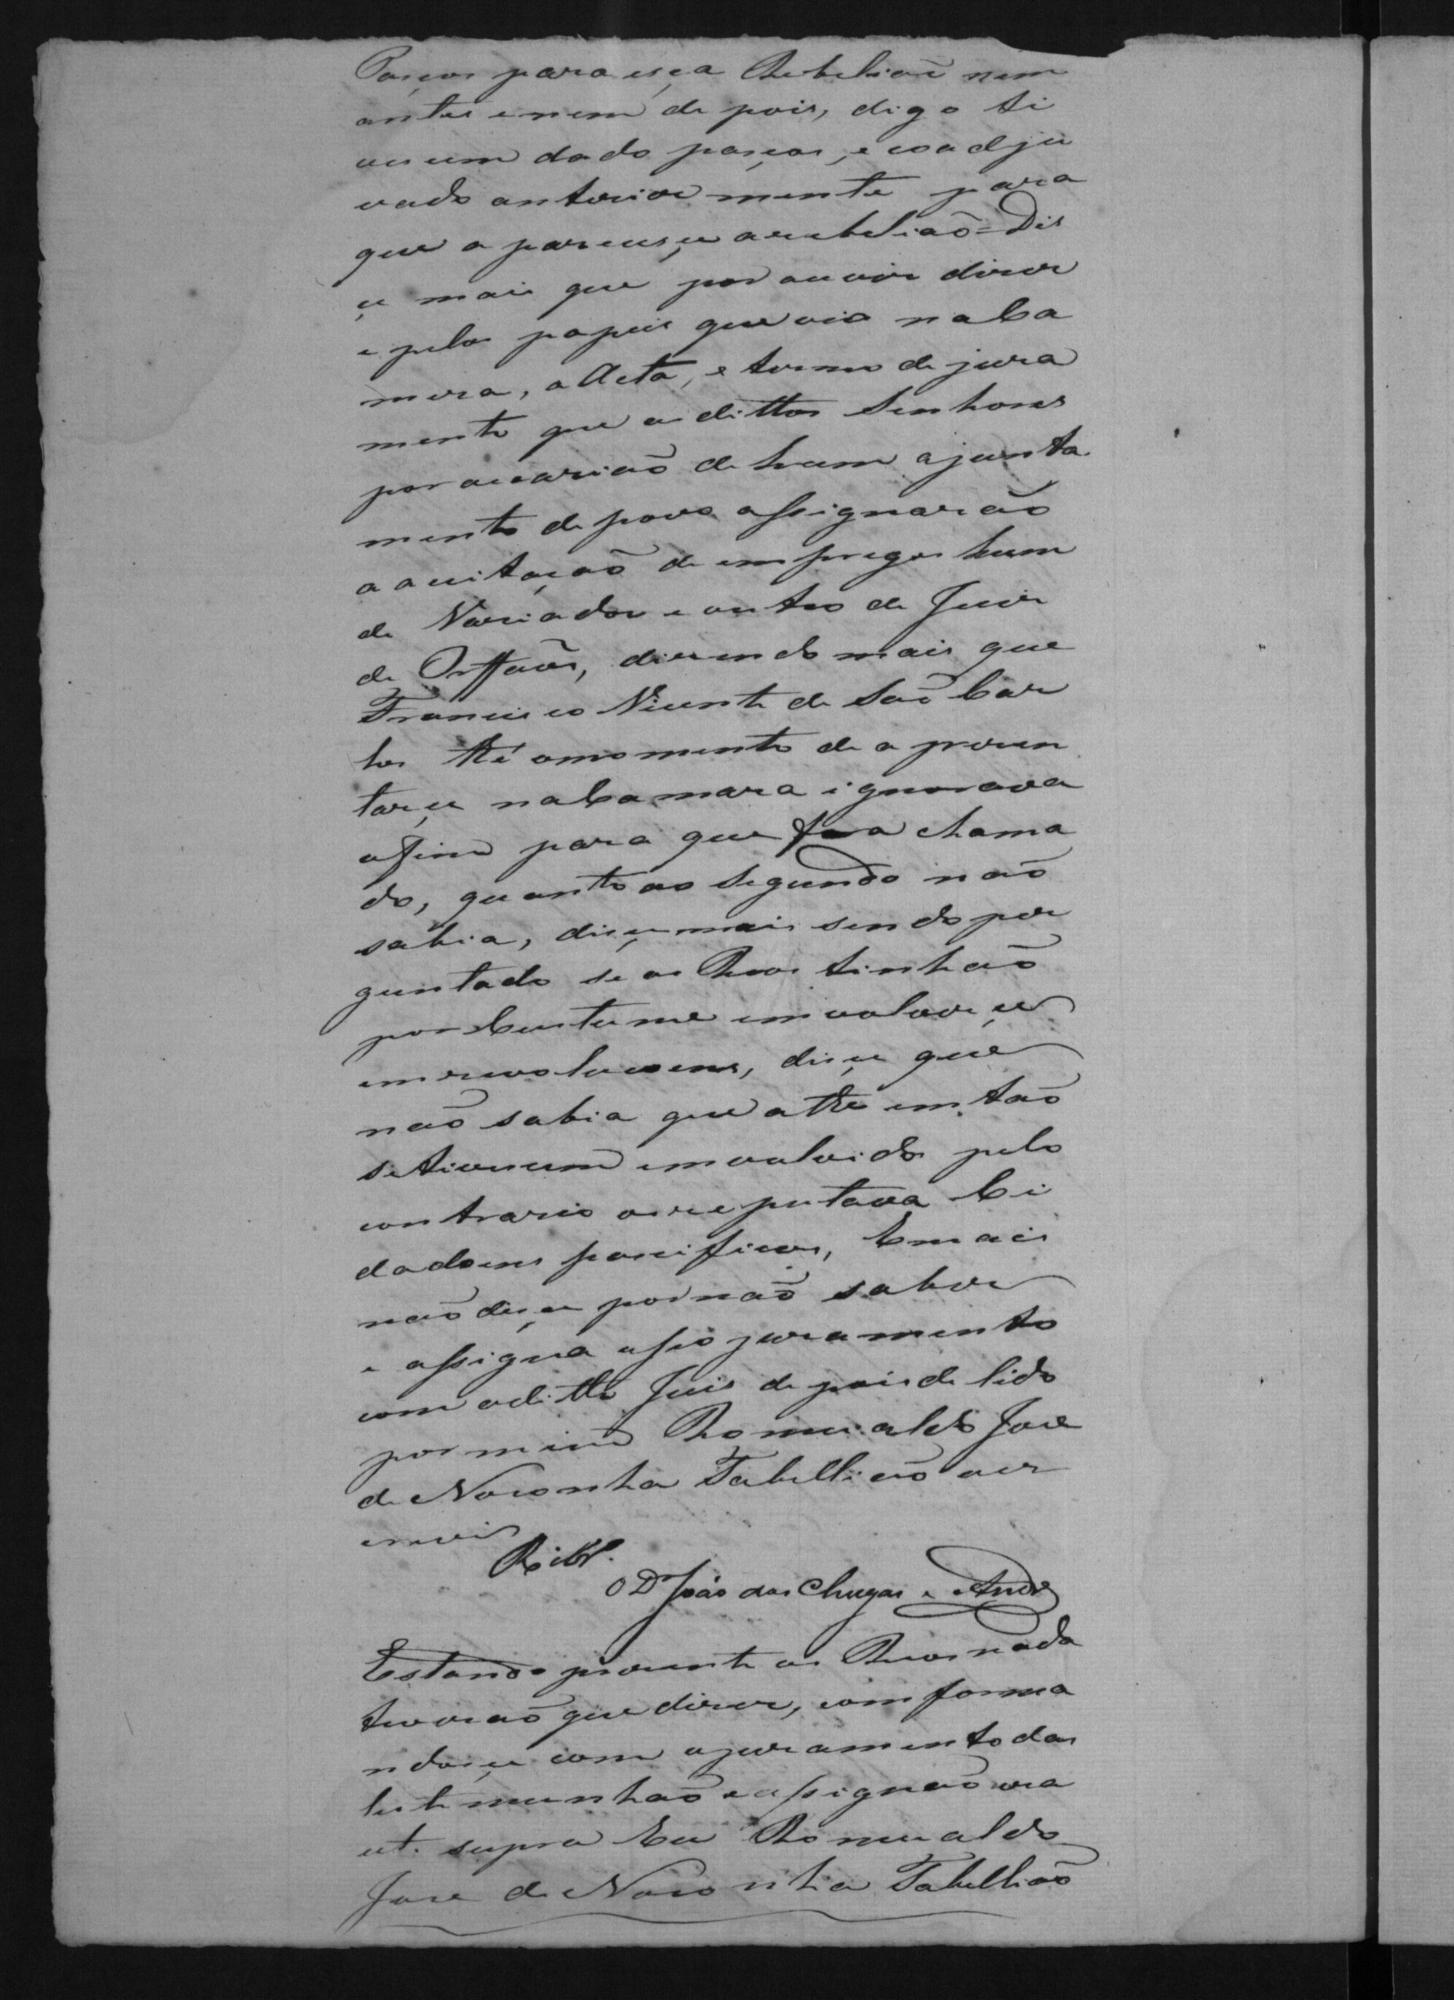 Paços para eça Rebeliaõ nem
antes e nem de pois, digo ti
vecem dado paços, e coadju
vado anteriormente para
que a pareceçe a rebeliaõ = Dis
çe mais que por ouvir dizer
e pelos papeis que vio na Ca
mera, a Acta, e termo de jura
mento que os dittos Senhores
por ocazião de hum ajunta
mento de povo assignarão
a aceitação de empregos hum
de Variador e outro de Juiz
de Orffaõs, dizendo mais que
Francisco Vicente de Saõ Car
los thé o momento de a prezen
tarçe na Camara ignorava
o fim para que fora chama
do, quanto ao segundo não
sabia, diçe mais sendo per
guntado se os Reos tinhão
por Custume invalverçe
em revolucoens, diçe que
não sabia que athe em tão
se tivecem envalvido pelo
contrario os reputava Ci
dadoens pacificos, E mais
não diçe por não saber
e assigna o seo juramento
com o ditto Juis de pois de lido
por mim Romualdo Joze
de Noronha Tabellião o es
crevi
Ribr.º
O Dr João das Chagas e Andre
Estando prezente os Reos nada
tiverão que dizer, comforma
ndoçe com o juramento das
testemunhas e assignão era
ut. supra Eu Romualdo
Joze de Noronha Tabellião